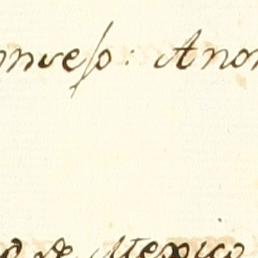 onveſo: Anon
d de Mexico